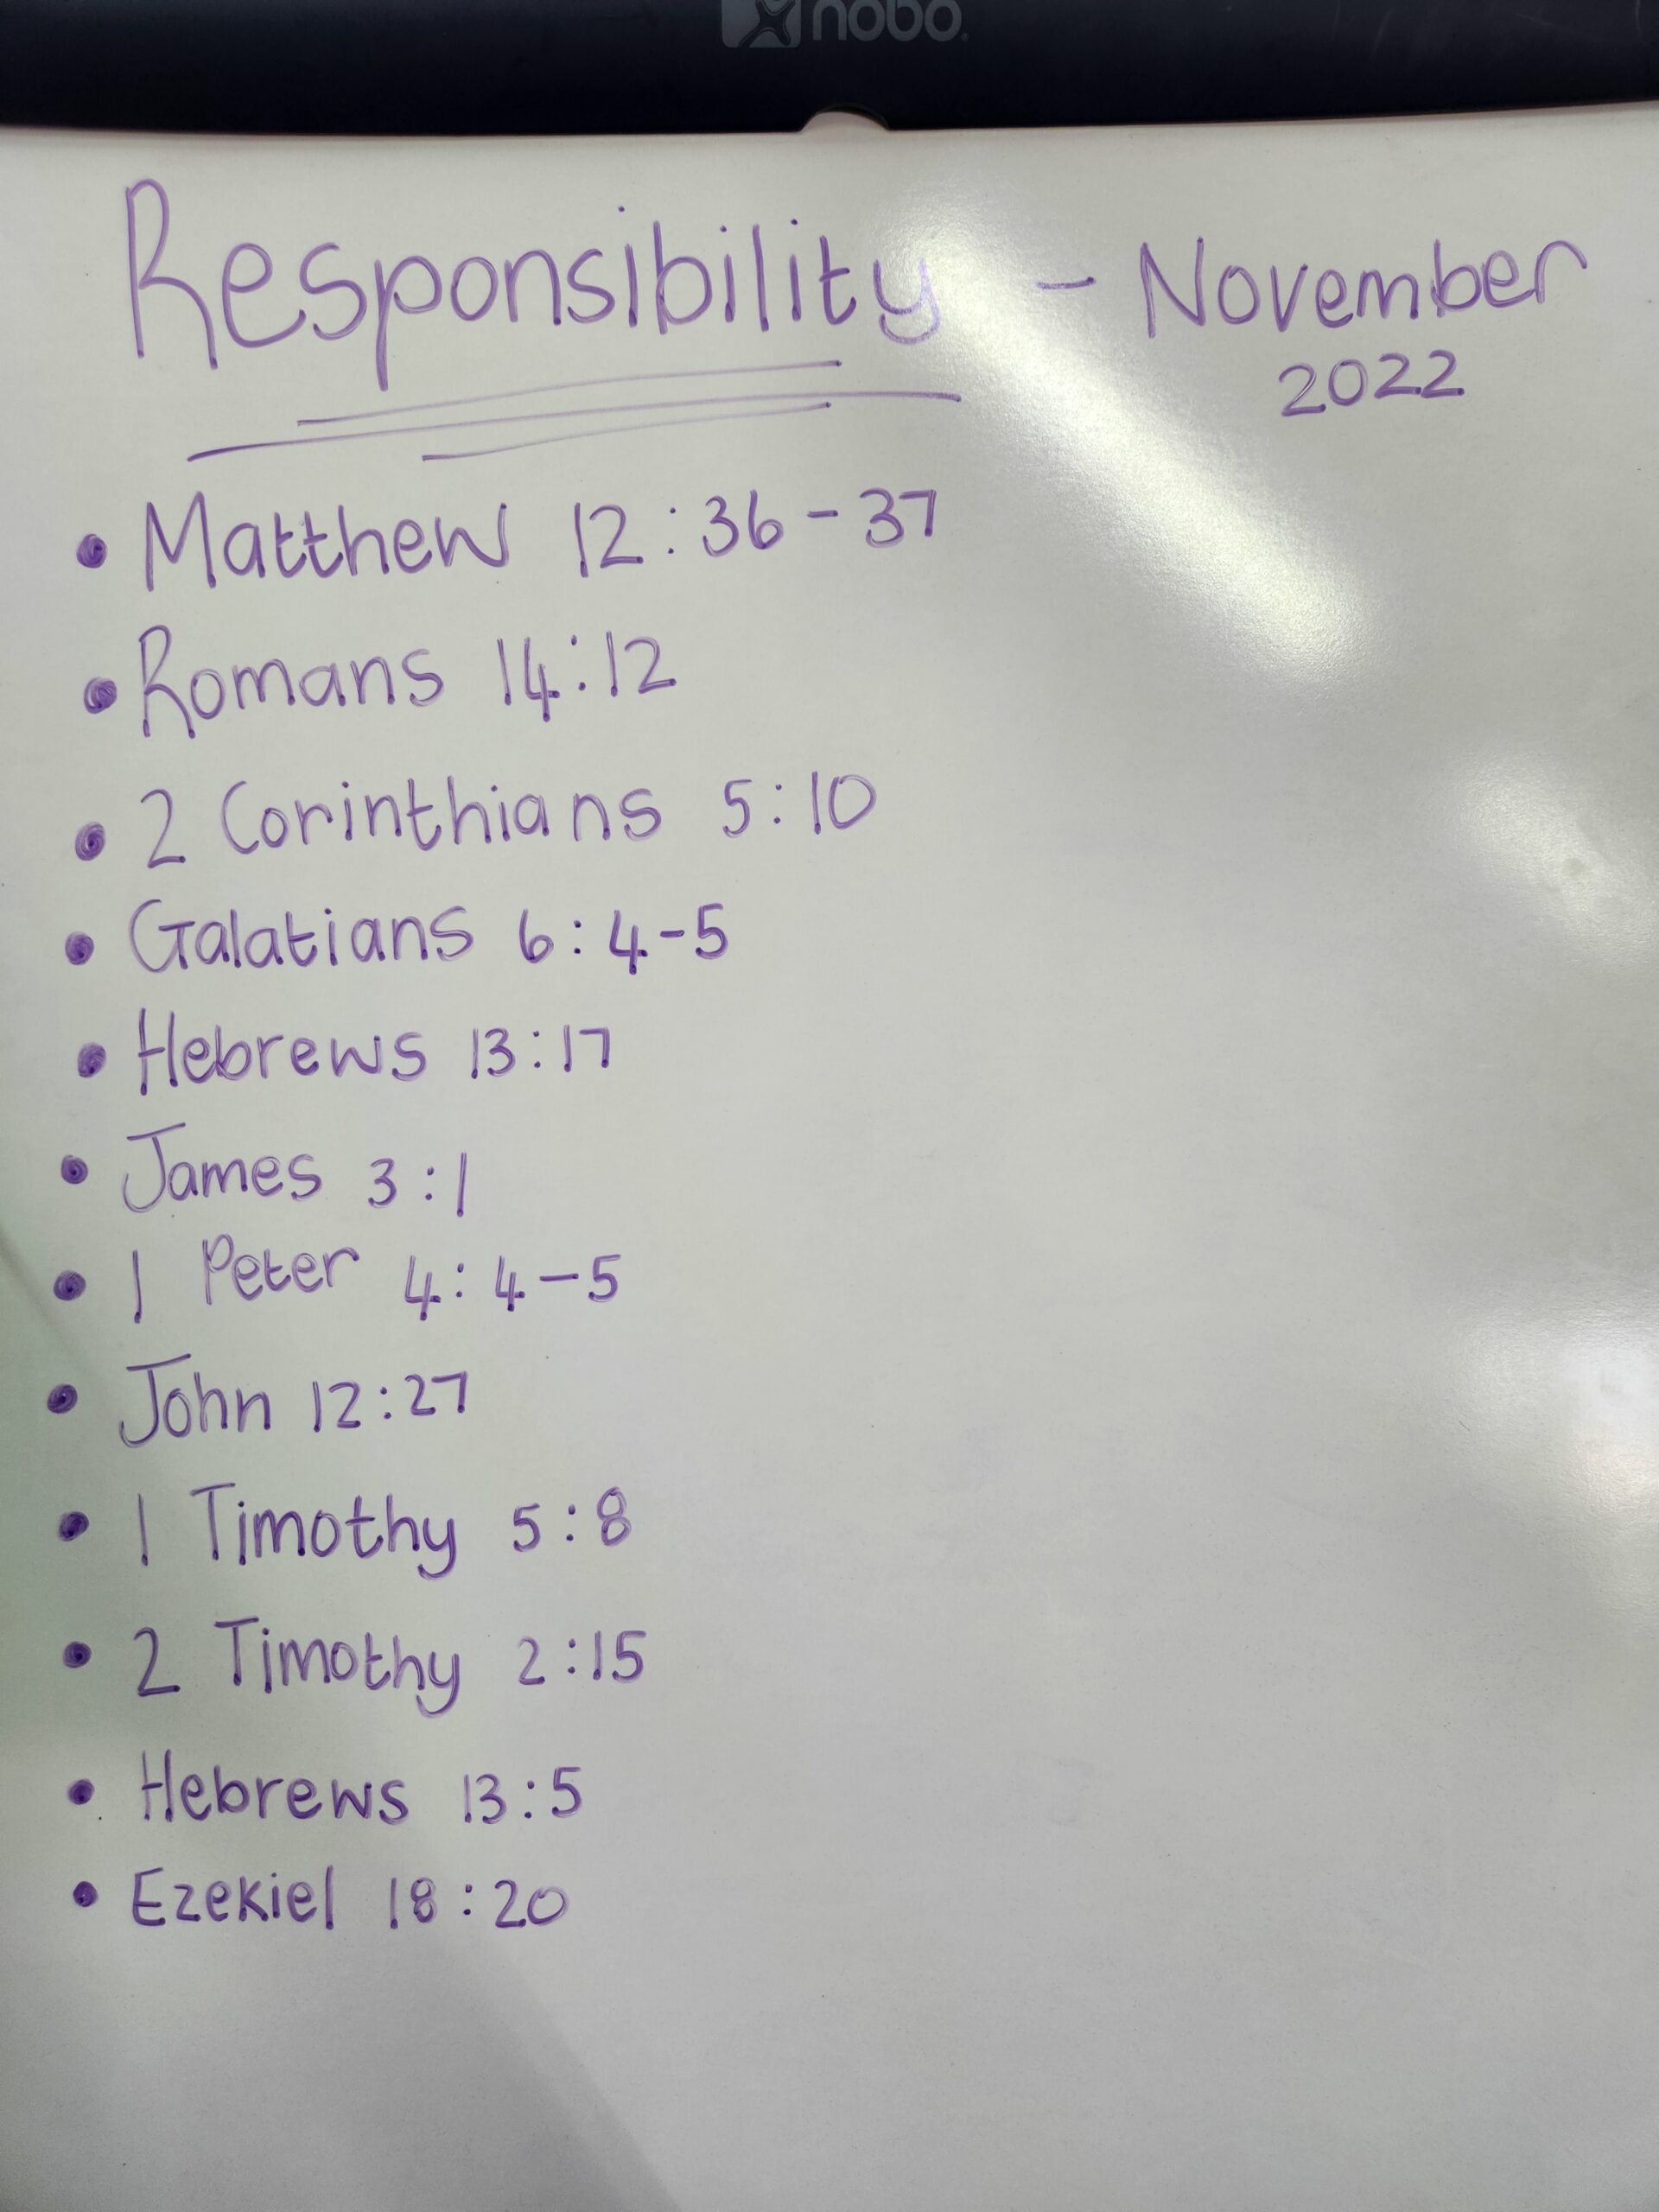 nobo
Responsibility - November
2022
• Matthew 12:36-37
• Romans 14:12
• 2 Corinthians 5:10
• Galatians 6:4-5
• Hebrews 13:17
• James 3:1
• 1 Peter 4:4-5
• John 12:27
• 1 Timothy 5:8
• 2 Timothy 2:15
• Hebrews 13:5
• Ezekiel 18:20